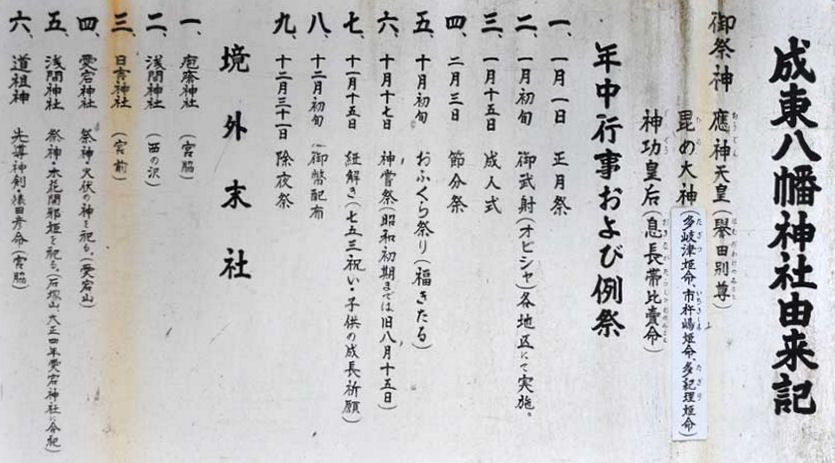 成東八幡神社由来記
御祭神 應神天皇(譽田別尊)
毘め大神(多岐津姫命、市杵嶋姫命、多紀理姫命)
神功皇后(息長帯比賣命)
年中行事および例祭
一、一月一日 正月祭
二、一月初旬 御武射(オビシャ)各地区にて実施。
三、一月十五日 成人式
四、二月三日 節分祭
五、十月初旬 おふくら祭り(福きたる)
六、十月十七日 神嘗祭(昭和初期までは旧八月十五日)
七、十一月十五日 紐解き(七五三・祝い・子供の成長祈願)
八、十二月初旬 御幣配布
九、十二月三十一日 除夜祭
境外末社
一、疱瘡神社 (宮脇)
二、浅間神社 (西の沢)
三、日宮神社 (宮前)
四、愛宕神社 祭神・火伏の神を祀る。(愛宕山)
五、浅間神社 祭神・木花開耶姫を祀る。(石塚山、大正四年愛宕神社に合祀)
六、道祖神 先導神剣・猿田彦命(宮脇)